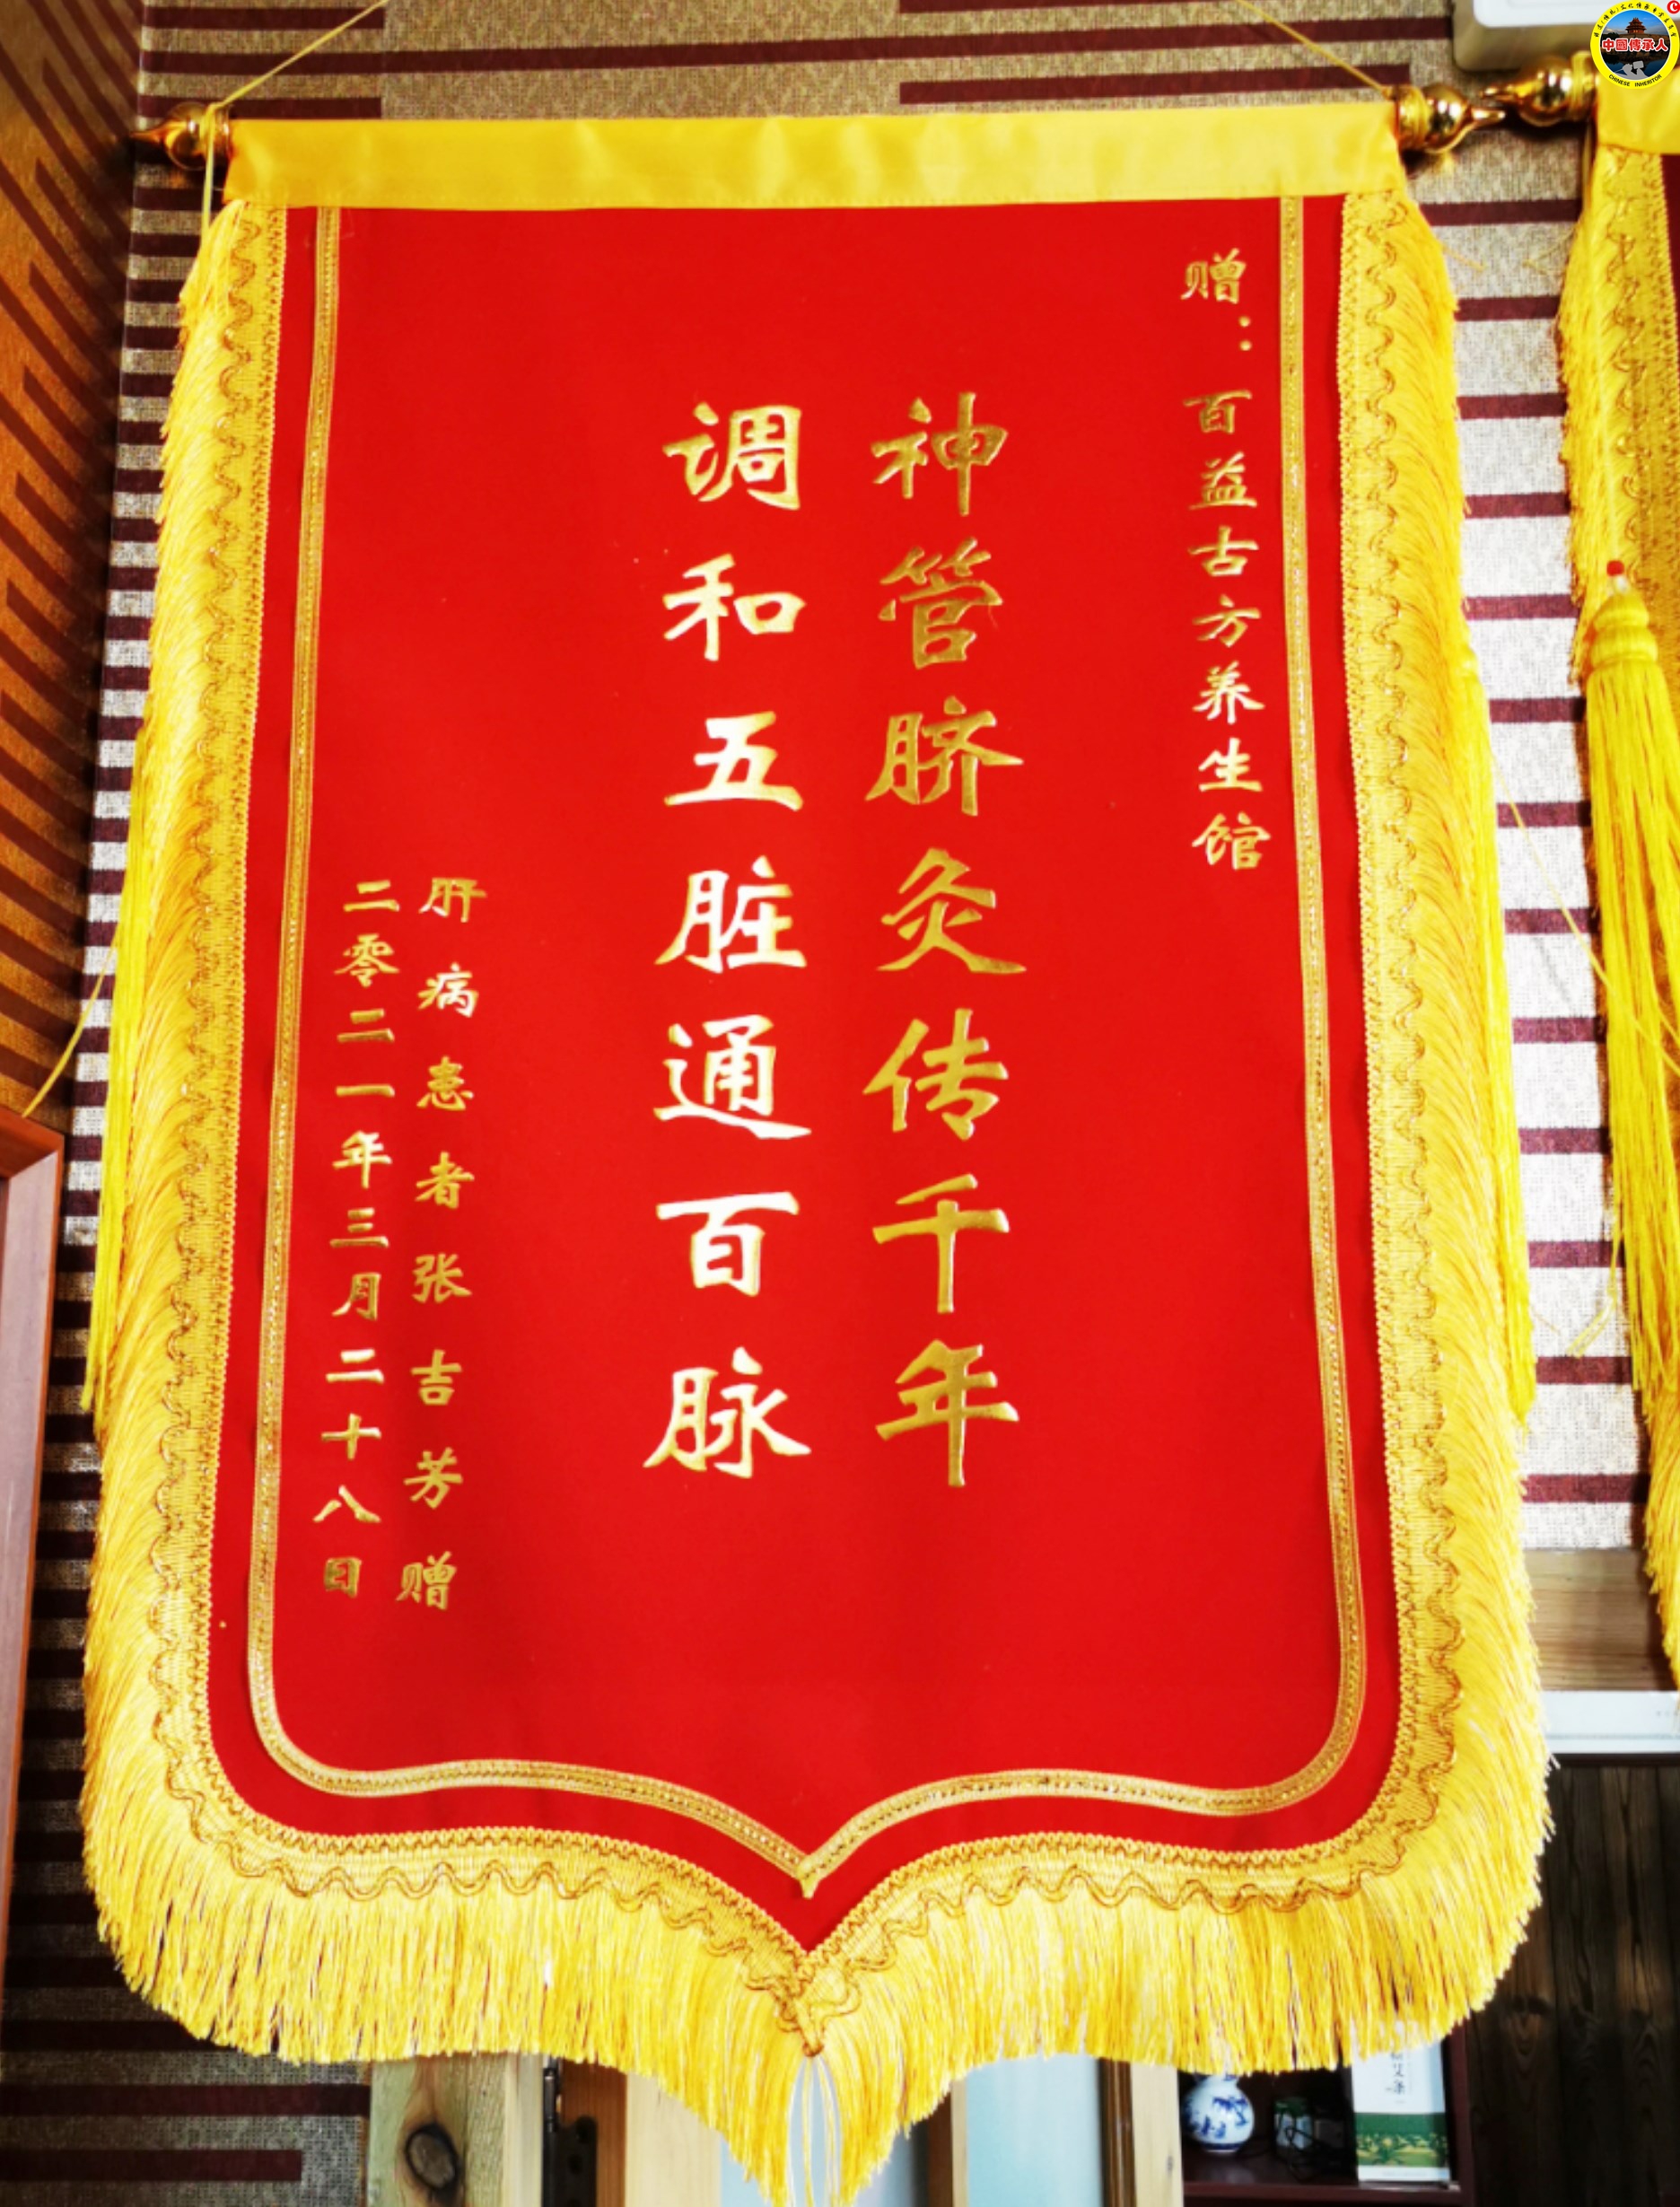 赠：百益古方养生馆
神管脐灸传千年
调和五脏通百脉
肝病患者张吉芳赠
二零二一年三月二十八日
中國傳承人
CHINESE INHERITOR